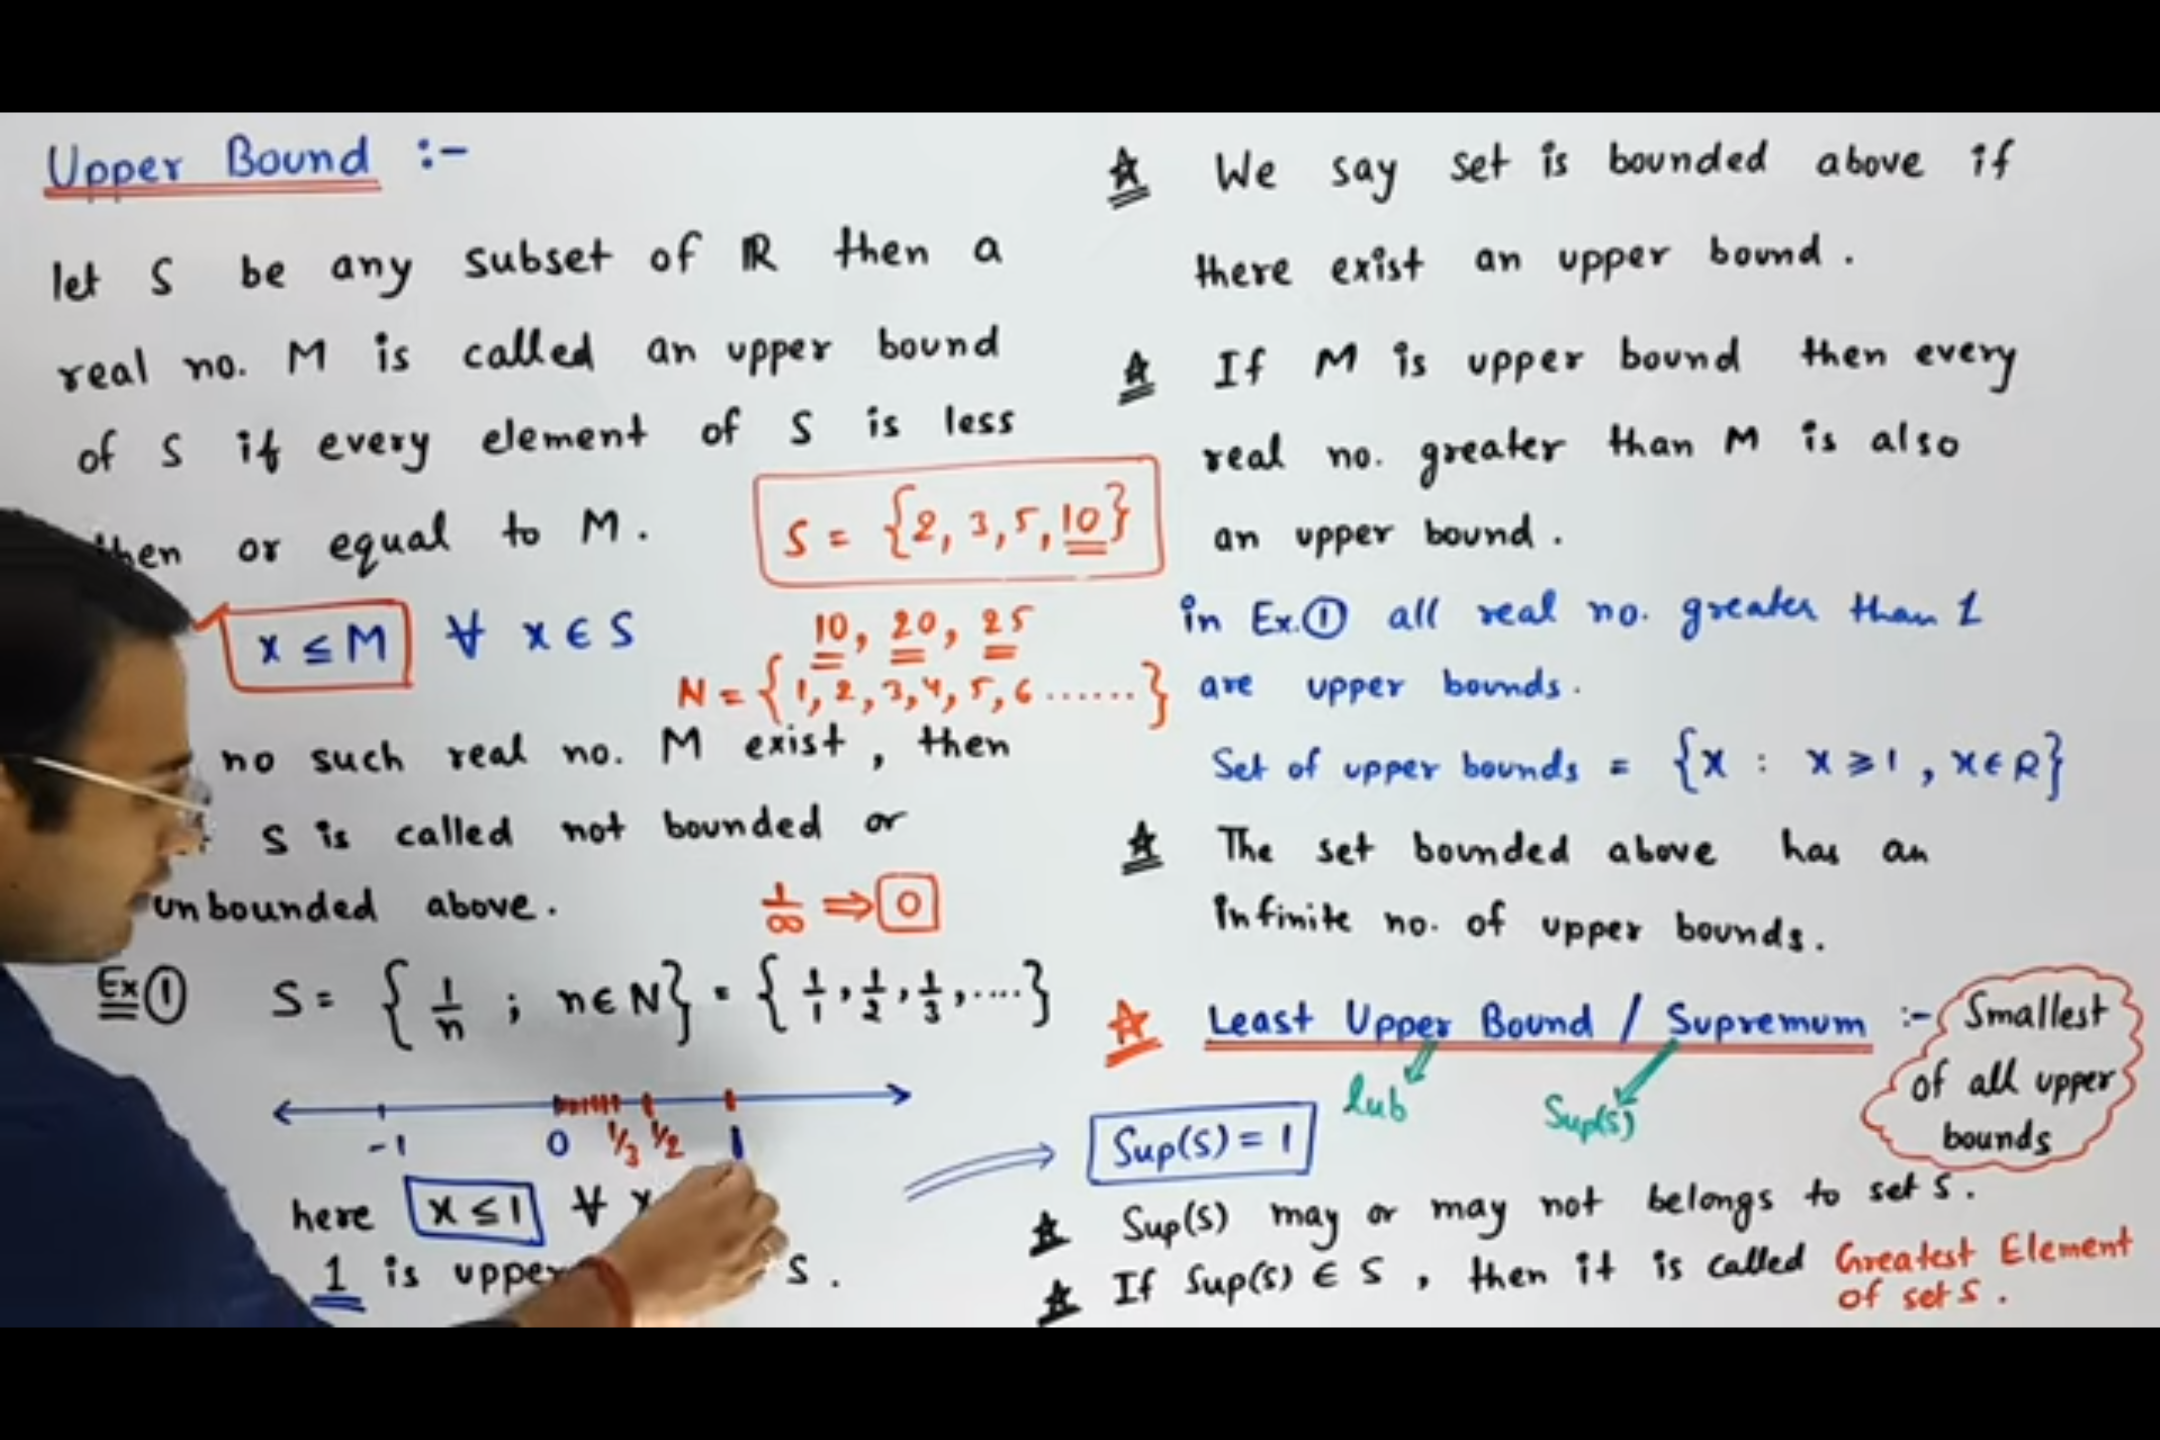 Upper Bound :-
let S be any subset of ℝ then a
real no. M is called an upper bound
of S if every element of S is less
then or equal to M.
S = {2, 3, 5, 10}
x ≤ M ∀ x ∈ S
10, 20, 25
N = {1, 2, 3, 4, 5, 6 ......}
no such real no. M exist, then
S is called not bounded or
unbounded above.
1/∞ ⇒ 0
Ex ① S = {1/n ; n ∈ N} = {1/1, 1/2, 1/3, ....}
-1 0 1/3 1/2 1
here x ≤ 1 ∀ x
1 is upper S.
☆ We say set is bounded above if
there exist an upper bound.
☆ If M is upper bound then every
real no. greater than M is also
an upper bound.
in Ex.① all real no. greater than 1
are upper bounds.
Set of upper bounds = {x : x ⩾ 1, x ∈ R}
☆ The set bounded above has an
infinite no. of upper bounds.
☆ Least Upper Bound / Supremum :-
lub Sup(S)
Smallest
of all upper
bounds
Sup(S) = 1
☆ Sup(S) may or may not belongs to set S.
☆ If Sup(S) ∈ S, then it is called Greatest Element
of set S.